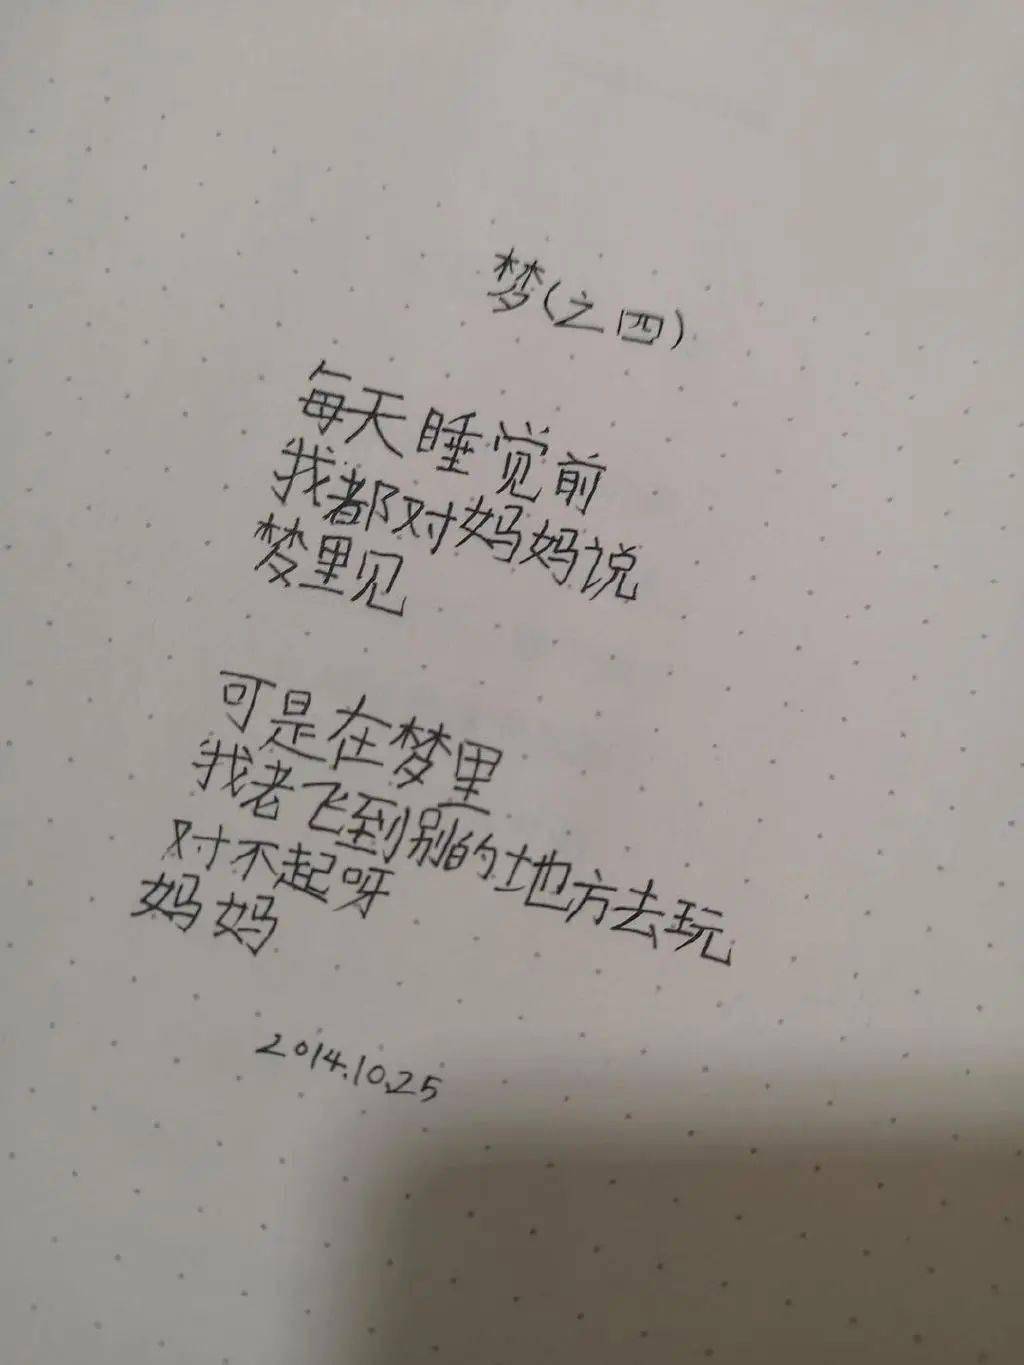 梦(之四)
每天睡觉前
我都对妈妈说
梦里见
可是在梦里
我老飞到别的地方去玩
对不起呀
妈妈
2014.10.25